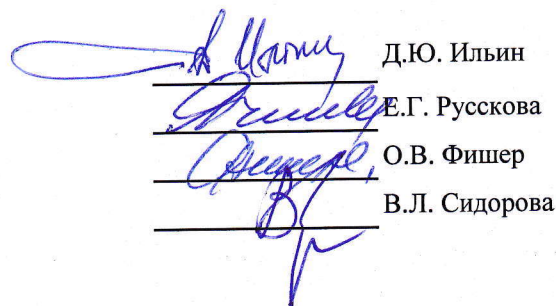 Д.Ю. Ильин
Е.Г. Русскова
О.В. Фишер
В.Л. Сидорова